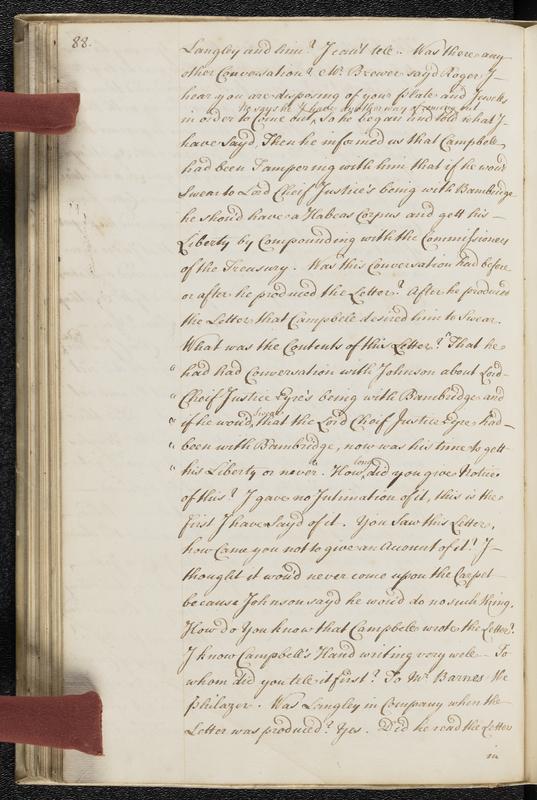 88.
Langley and him? I can't tell.. Was there any
other Conversation? Mr. Brewer sayd Roger, I
hear you are disposing of your Plate and Jewels
he says he & I have another way of coming out
in order to Come out, So he began and told what I
have Sayd, Then he informed us that Campbell
had been Tampering with him that if he woud
Swear to Lord Cheif Justice's being with Bambridge
he shoud have a Habeas Corpus and gett his
Liberty by Compounding with the Commissioners
of the Treasury. Was this Conversation had before
or after he produced the Letter? After he produced
the Letter, that Campbell desired him to Swear.
What was the Contents of this Letter? "That he
" had had Conversation with Johnson about Lord
" Cheif Justice Eyre's being with Bambridge and
Swear
" if he woud, that the Lord Cheif Justice Eyre had
" been with Bambridge, now was his time to gett
long
" his Liberty or never. How, did you give Notice
of this? I gave no Intimation of it, this is the
first I have Sayd of it. You Saw this Letter,
how Came you not to give an Account of it? I
thought it woud never come upon the Carpet
because Johnson sayd he woud do no such thing.
How do You know that Campbell wrote the Letter?
I know Campbell's Hand writing very well – To
whom did you tell it first? To Mr. Barnes the
Philazer. Was Langley in Company when the
Letter was produced? Yes. Did he read the Letter
in